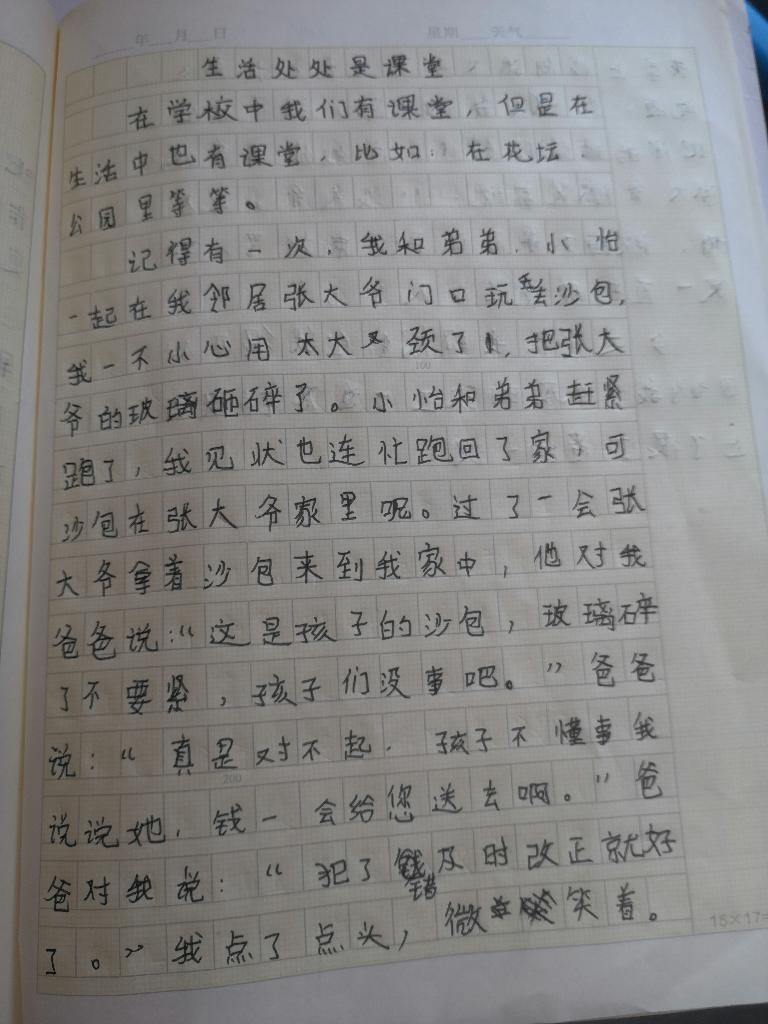 年 月 日 星期 天气
生活处处是课堂
在学校中我们有课堂，但是在
生活中也有课堂，比如：在花坛、
公园里等等。
记得有一次，我和弟弟、小怡
一起在我邻居张大爷门口玩丢沙包，
我一不小心用太大 了，把张大
爷的玻璃砸碎了。小怡和弟弟赶紧
跑了，我见状也连忙跑回了家，可
沙包在张大爷家里呢。过了一会张
大爷拿着沙包来到我家中，他对我
爸爸说：“这是孩子的沙包，玻璃碎
100
了不要紧，孩子们没事吧。”爸爸
说：“真是对不起，孩子不懂事我
200
说说她，钱一会给您送去啊。”爸
爸对我说：“犯了错及时改正就好
了。”我点了点头，微笑着。
15×17=